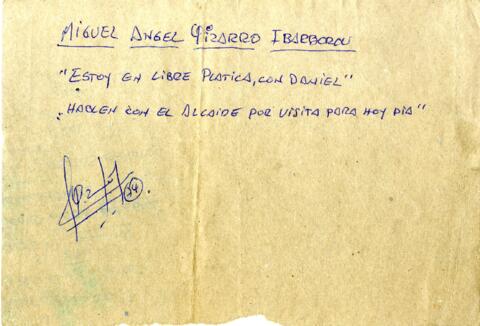 MIGUEL ANGEL PIZARRO IBARBOROU
"ESTOY EN LIBRE PLATICA, CON DANIEL"
"HABLEN CON EL ALCAIDE POR VISITA PARA HOY DIA"